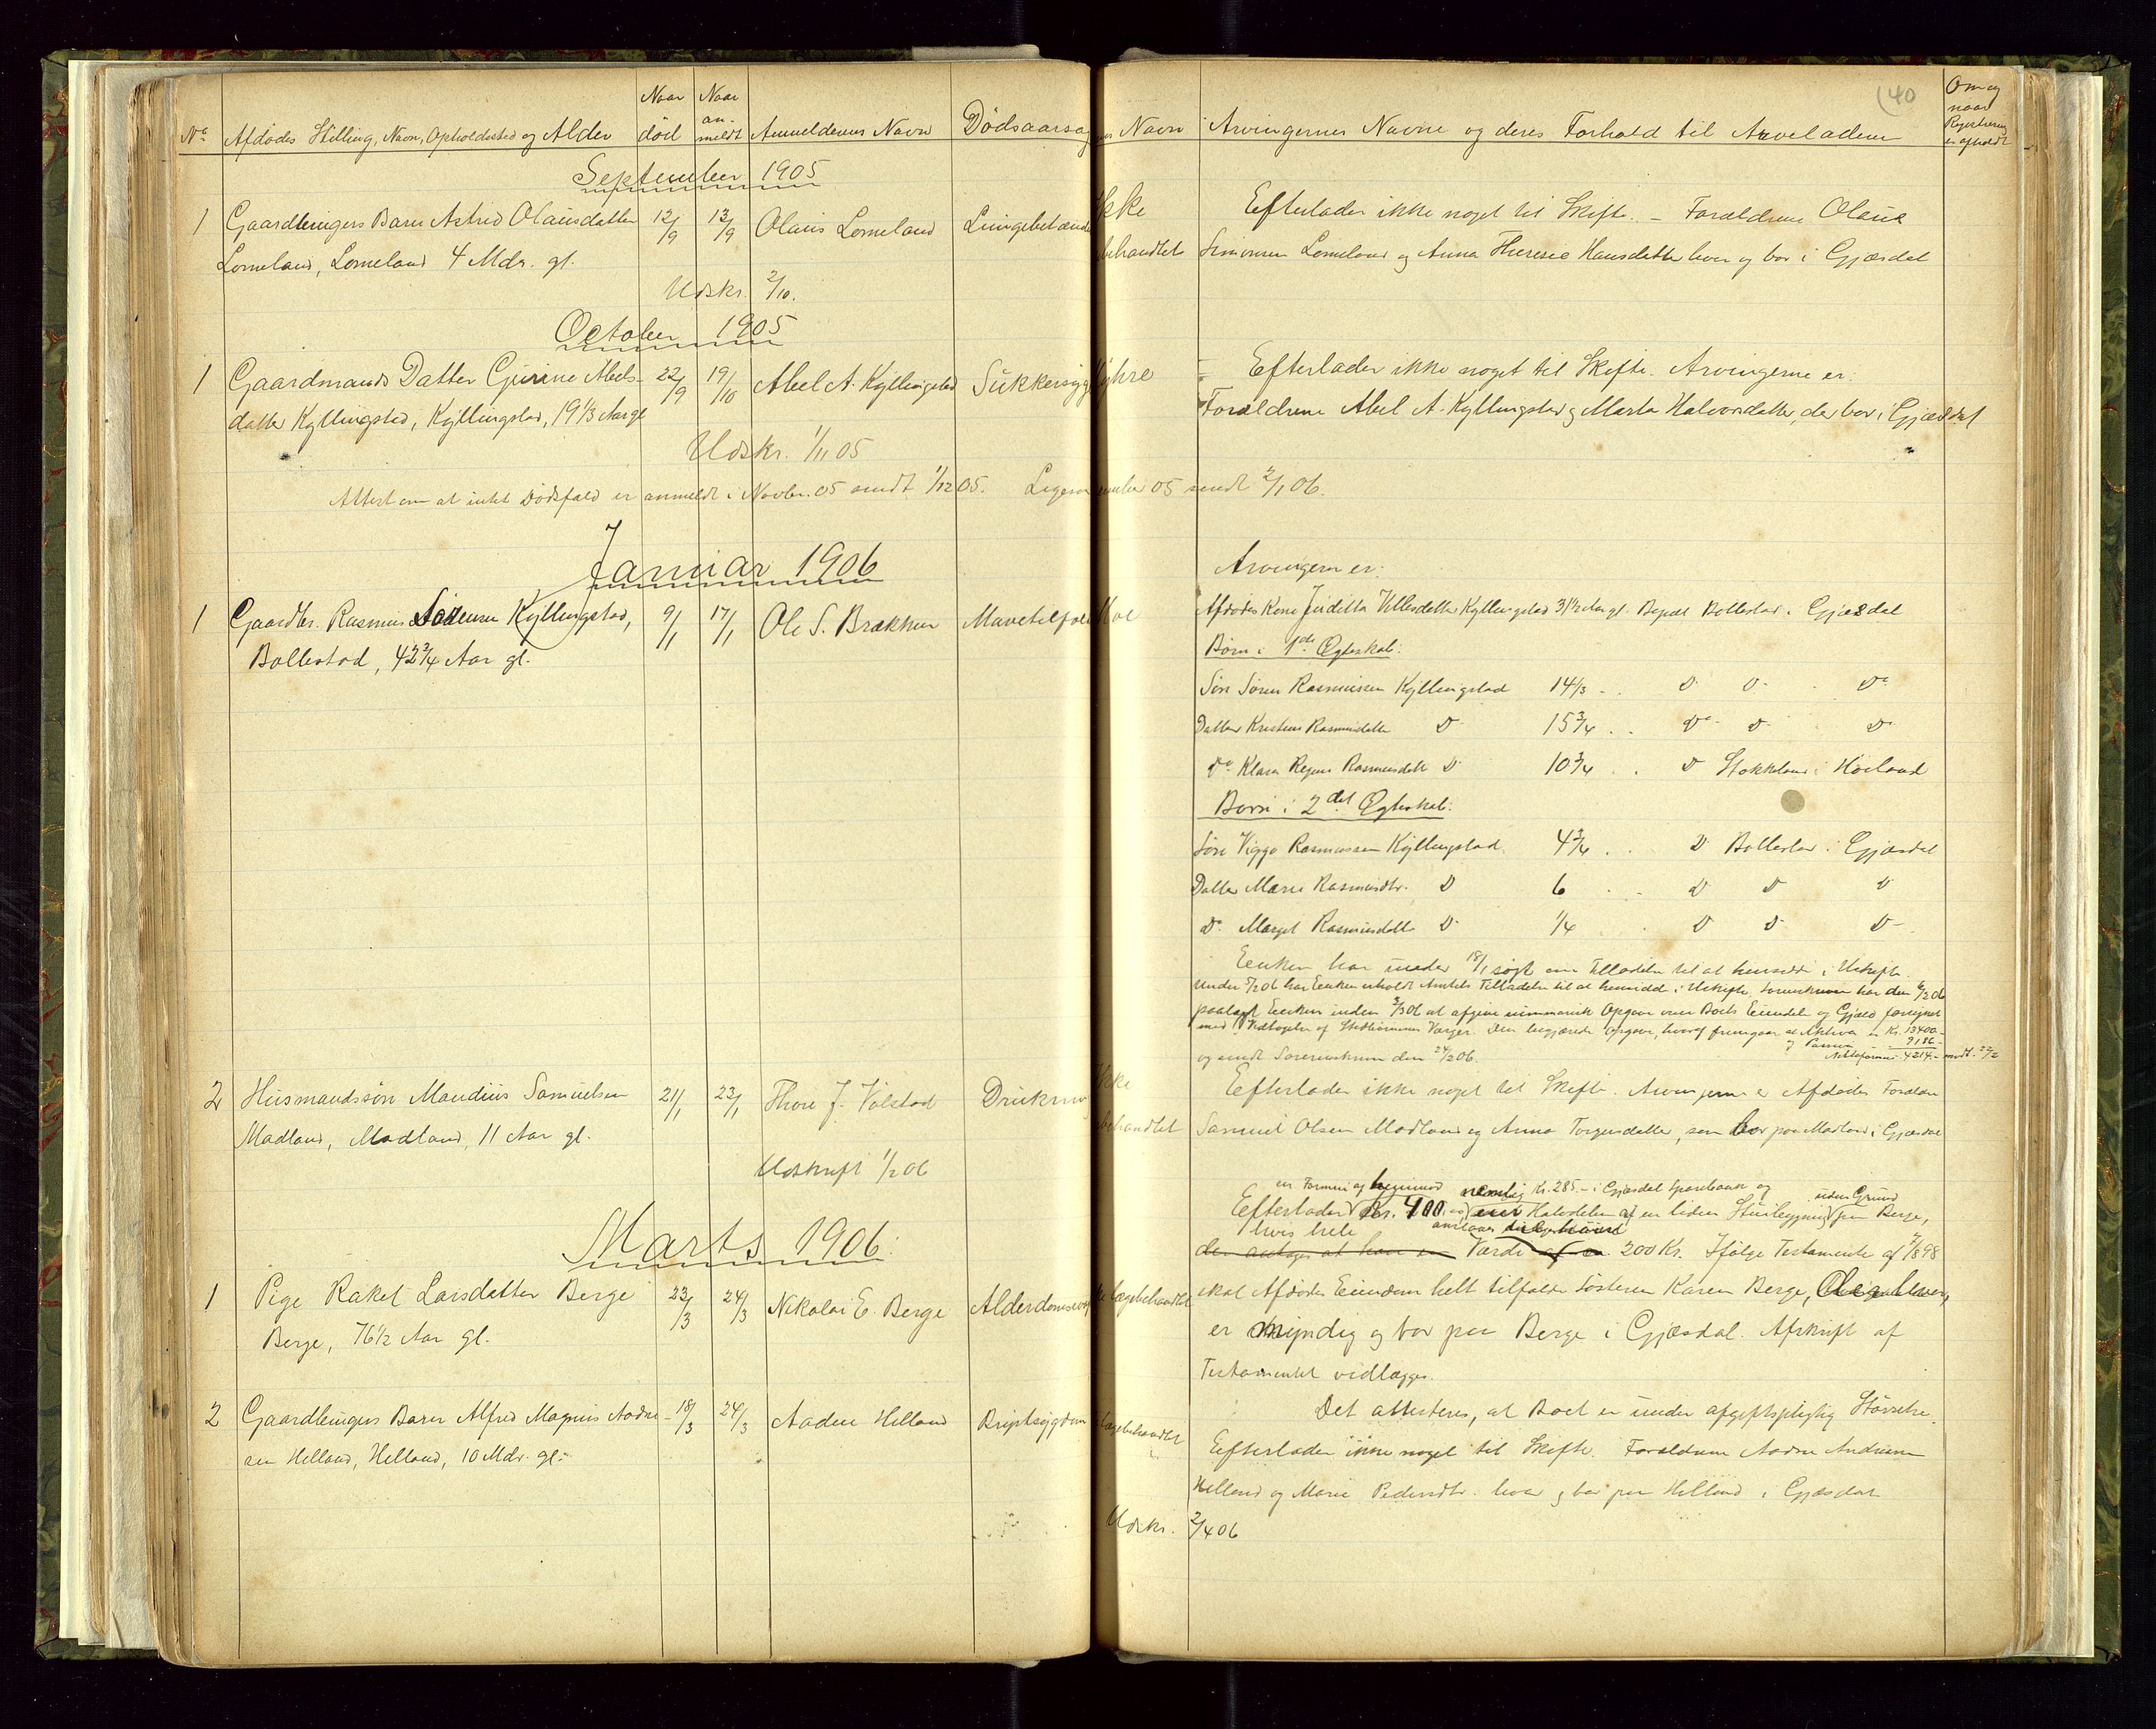 No Afdødes Stilling, Navn, Opholdssted og Alder Naar død Naar anmeldt Anmelderens Navn Dødsaarsag
September 1905
1 Gaardbrugers Barn Astrid Olausdatter 12/9 13/9 Olaus Lomeland Lungebetænd
Lomeland, Lomeland 4 Mdr. gl.
Udskr. 2/10.
October 1905
1 Gaardmands Datter Gurine Abels- 22/9 19/10 Abel A. Kyllingstad Sukkersyg
datter Kyllingstad, Kyllingstad, 19 1/3 Aar gl
Udskr. 1/11 05
Attest om at intet Dødsfald er anmeldt i Novbr. 05 sendt 1/12 05. Ligesaa
Januar 1906
1 Gaardbr. Rasmus Sørensen Kyllingstad, 9/1 17/1 Ole S. Brækken
Bollestad, 42 3/4 Aar gl.
2 Husmandssøn Maudius Samuelsen 21/1 23/1 Thore J. Vølstad Drukning
Madland, Madland, 11 Aar gl.
Udskrift 1/2 06
Marts 1906.
1 Pige Rakel Larsdatter Berge 23/3 24/3 Nikolai E. Berge
Berge, 76 1/2 Aar gl.
2 Gaardbrugers Barn Alfred Magnus Aadne- 18/3 24/3 Aadne Helland Brystsygdom
sen Helland, Helland, 10 Mdr. gl.
(40
Navn Arvingernes Navne og deres Forhold til Arveladeren Om og naar Registrering er afholdt
Ikke Efterlader ikke noget til Skifte. – Forældrene Olaus
behandlet Simonsen Lomeland og Anna Therese Hansdatter lever og bor i Gjæsdal
Efterlader ikke noget til Skifte. Arvingerne er:
Forældrene Abel A. Kyllingstad og Marta Halvorsdatter, der bor i Gjæsdal
05 sendt 2/1 06.
Arvingerne er:
Afdødes Kone Juditta Villesdatter Kyllingstad 31 1/2 Aar gl. Bopæl Bollestad i Gjæsdal
Børn i 1ste Ægteskab:
Søn Søren Rasmussen Kyllingstad 14 1/3 - . Do Do - Do
Datter Kristine Rasmusdatter Do 15 3/4 . . Do Do Do
Do Klara Regine Rasmusdatt Do 10 3/4 . . Do Stokkeland i Høiland
Børn i 2det Ægteskab:
Søn Viggo Rasmussen Kyllingstad. 4 3/4 . . Do Bollestad i Gjæsdal
Datter Marie Rasmusdtr. Do 6 . - Do Do Do
Do Marget Rasmusdatt. Do 1/4 . Do Do Do
Enken har under 18/1 søgt om Tilladelse til at hensidde i Uskifte.
Under 5/2 06 har Enken erholdt Amtets Tilladelse til at hensidde i Uskifte. Sorenskriveren har den 6/2 06
paalagt Enken inden 3/3 06 at afgive summarisk Opgave over Boets Eiendele og Gjæld forsynet
med Vedtagelse af Værger. Den begjærede Opgave, hvoraf fremgaar at Aktiva Kr. 13400 -
og Passiva - 9186 -
og sendt Sorenskriveren den 24/2 06. Nettoformue 4214.- modt. 22/2
Ikke Efterlader ikke noget til Skifte. Arvingerne er Afdødes Forældre
behandlet Samuel Olsen Madland og Anna Torgersdatter, som bor paa Madland i Gjæsdal
en Formue af nemlig Kr. 285.- i Gjæsdal Sparebank og uden Grund
Efterlader Kr. 400, Halvdelen af en liden Stuebygning paa Berge,
hvis hele antages
den antages at have en Værdi af 200 Kr. Ifølge Testamente af 7/8 98
Lægebehandlet skal Afdødes Eiendom helt tilfalde Søsteren Karen Berge,
er myndig og bor paa Berge i Gjæsdal. Afskrift af
Testamentet vedlægges.
Det attesteres, at Boet er under afgiftspligtig Størrelse.
Lægebehandlet Efterlader ikke noget til Skifte. Forældrene Aadne Andersen
Helland og Marie Pedersdtr. lever og bor paa Helland i Gjæsdal
Udskr. 2/4 06